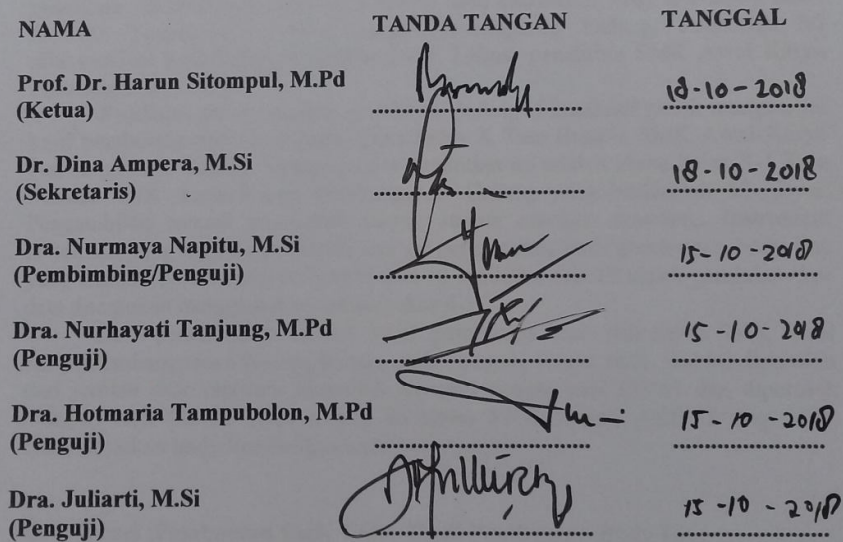 NAMA TANDA TANGAN TANGGAL
Prof. Dr. Harun Sitompul, M.Pd
(Ketua) 18-10-2018
Dr. Dina Ampera, M.Si
(Sekretaris) 18-10-2018
Dra. Nurmaya Napitu, M.Si
(Pembimbing/Penguji) 15-10-2018
Dra. Nurhayati Tanjung, M.Pd
(Penguji) 15-10-2018
Dra. Hotmaria Tampubolon, M.Pd
(Penguji) 15-10-2018
Dra. Juliarti, M.Si
(Penguji) 15-10-2018